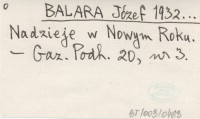 BALARA Józef 1932...
Nadzieje w Nowym Roku.
– Gaz. Podh. 20, nr 3.
BJ/003/0403